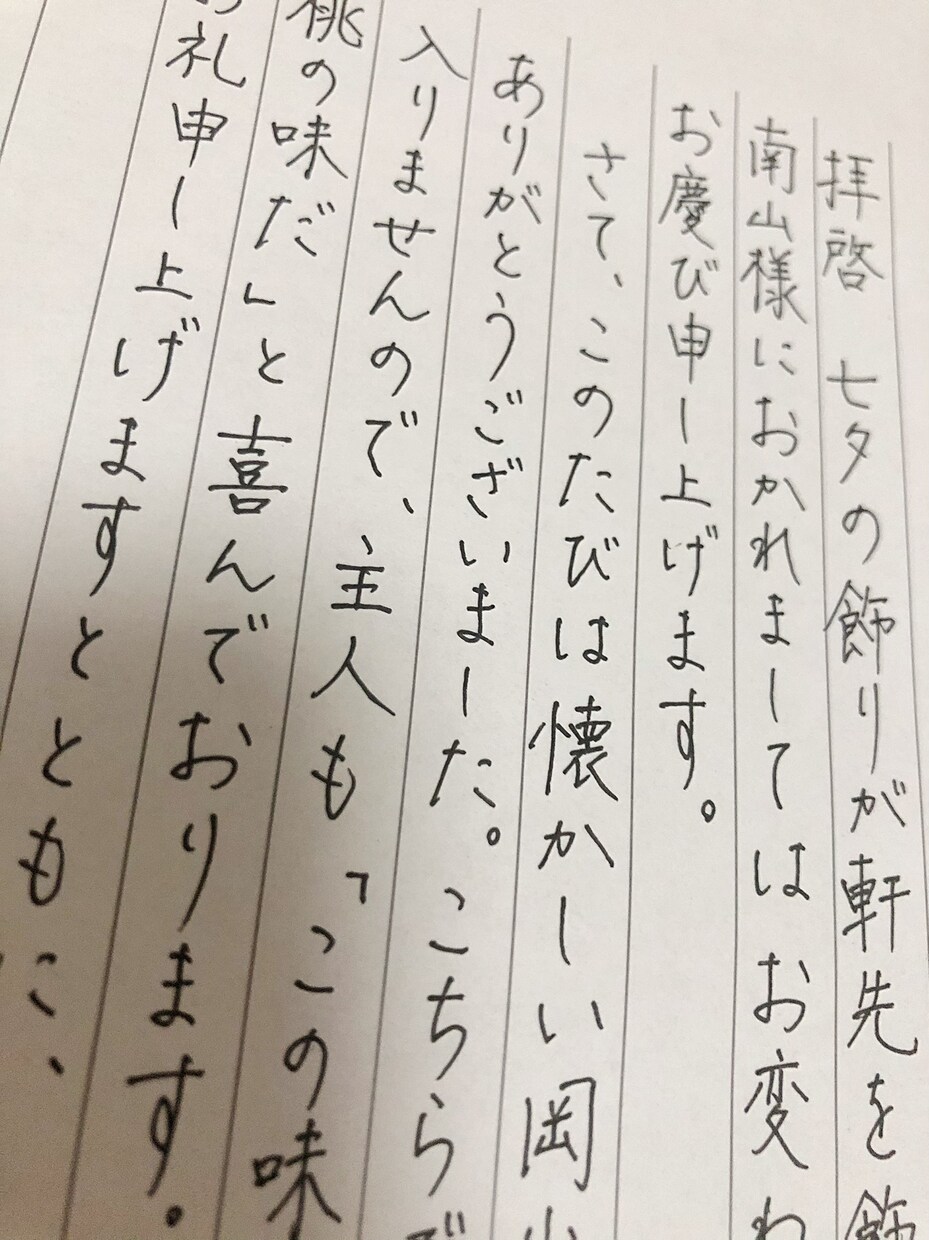 拝啓 七夕の飾りが軒先を飾
南山様におかれましてはお変わ
お慶び申し上げます。
さて、このたびは懐かしい岡山
ありがとうございました。こちらで
入りませんので、主人も「この味
桃の味だ」と喜んでおります。
お礼申し上げますとともに、